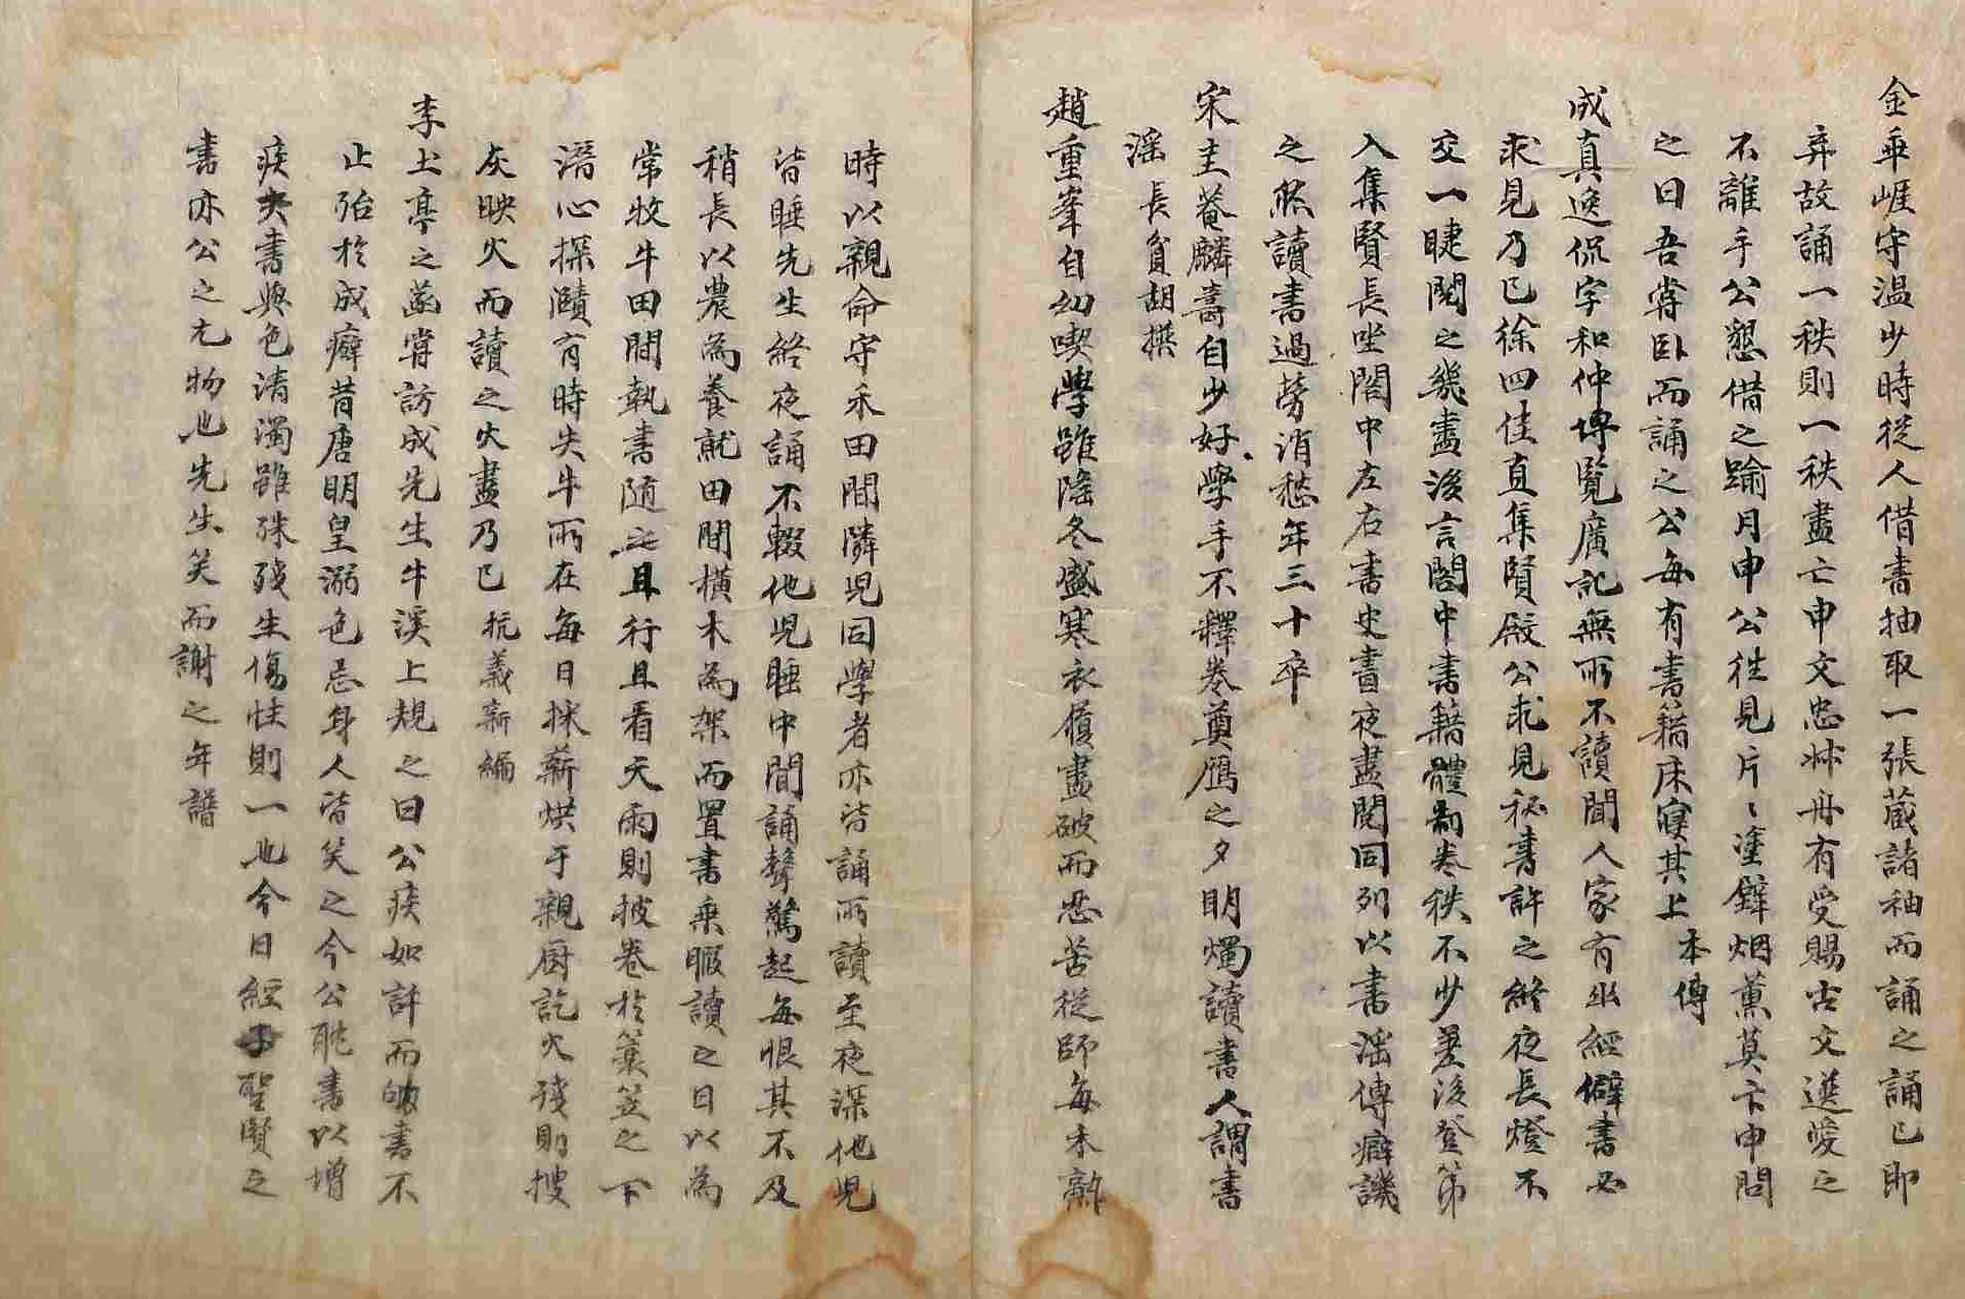 金乖崖守温少時從人借書抽取一張蔵諸袖而誦之誦已即
弃故誦一秩則一秩盡亡申文忠叔舟有受賜古文選愛之
不離手公懇借之踰月申公徃見片〻塗鐴烟薰莫卞申問
之曰吾甞臥而誦之公每有書籍床寘其上 本傳
成真逸侃字和仲博覧廣記無所不讀聞人家有出經僻書必
求見乃已徐四佳直集賢殿公求見秘書許之終夜長燈不
交一睫閱之幾盡後言閣中書籍體制卷秩不少差後登第
入集賢長坐閣中左右書史晝夜盡閱同列以書滛傳癖譏
之㷩讀書過勞消愁年三十卒
宋圭菴麟壽自少好學手不釋卷奠鴈之夕明燭讀書人謂書
滛 長貧胡撰
趙重峯自幼喫學雖隆冬盛寒衣履盡破而忍苦從師每禾熟
時以親命守禾田間隣児同學者亦皆誦所讀至夜深他児
皆睡先生終夜誦不輟他児睡中聞誦聲驚起每恨其不及
稍長以農為養就田間横木為架而置書乗暇讀之日以為
常牧牛田間執書随之且行且看天雨則披卷於簑笠之下
潛心探賾有時失牛所在每日採薪烘于親厨訖火殘則搜
灰映火而讀之火盡乃已 抗義新編
李土亭之菡甞訪成先生牛溪上規之曰公疾如許而的書不
止殆於成癖昔唐明皇溺色忘身人皆笑之今公耽書以增
疾夫書與色清濁雖殊殘生傷性則一也今日經聖賢之
書亦公之尤物也先生笑而謝之年譜